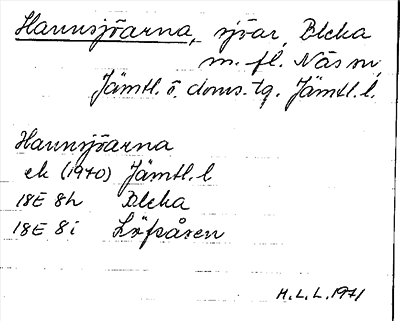 Hannsjöarna, sjöar, Bleka
m. fl. Näs sn,
Jämtl. ö. doms. tg. Jämtl. l.
Hannsjöarna
ek (1940) Jämtl. l
18E 8h Bleka
18E 8i Löfsåsen
H. L. L. 1971